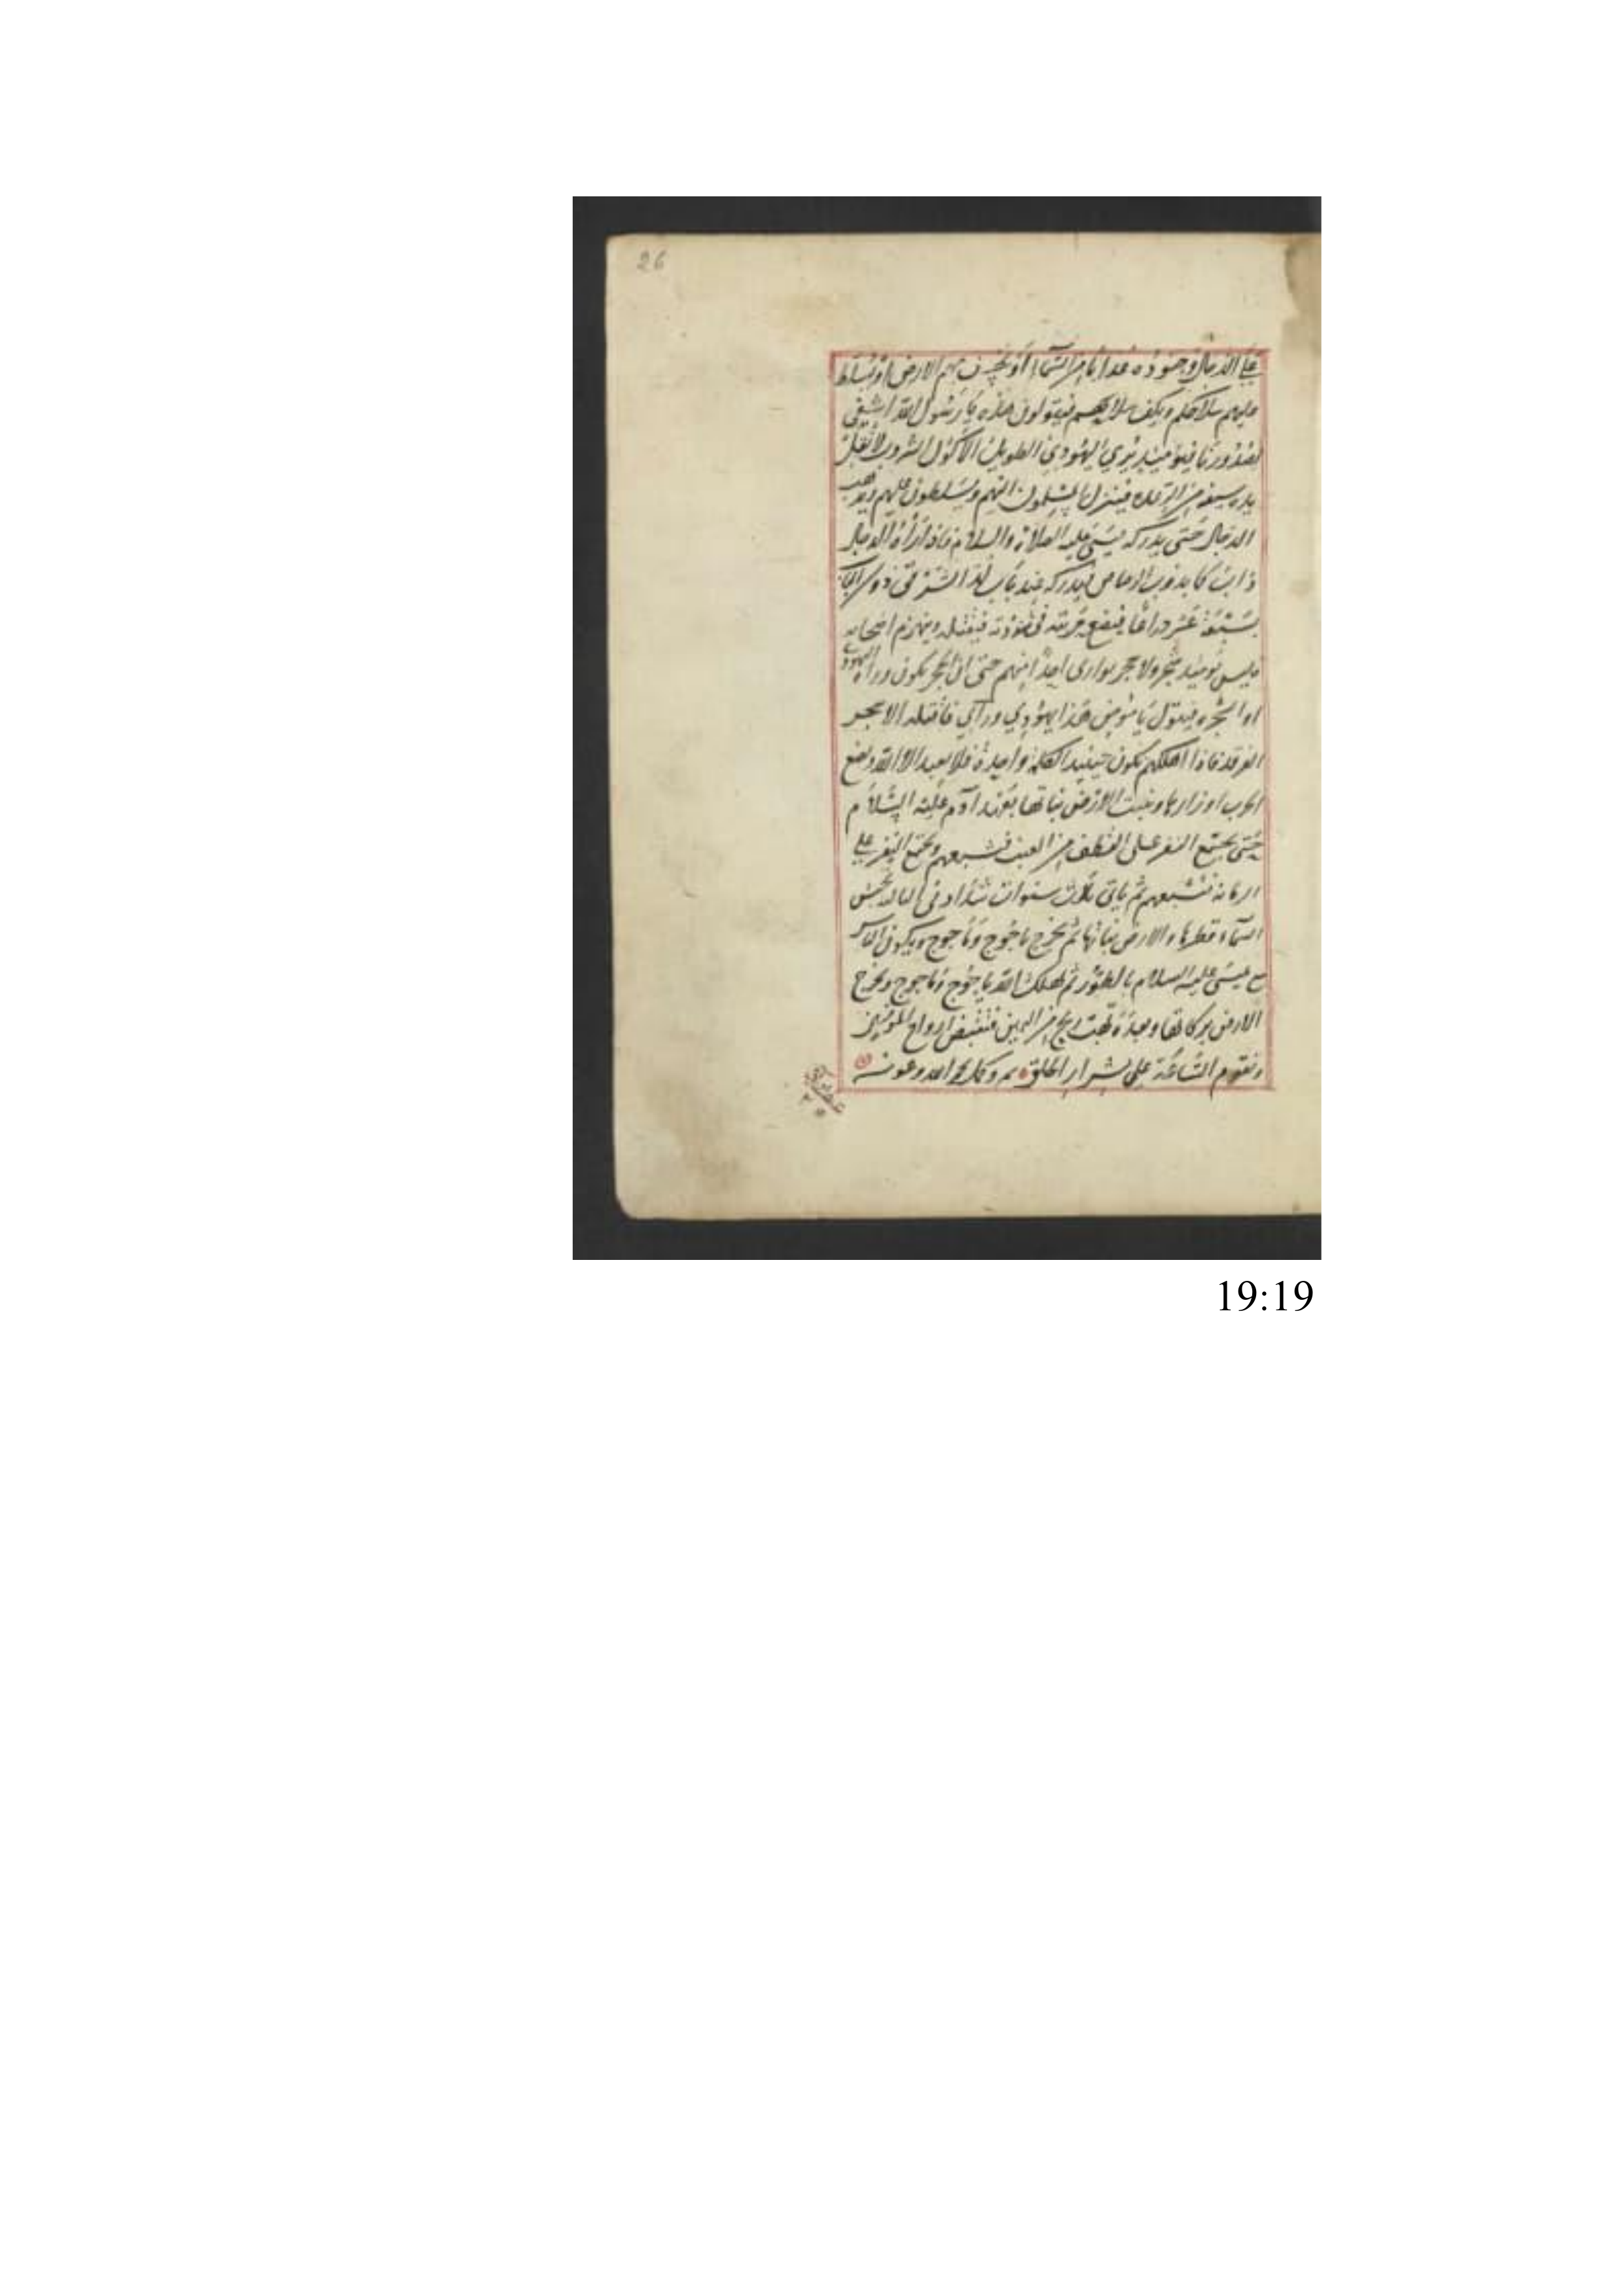 26
على الدجال وجنوده عذابا من السماء او يخسف بهم الارض او يسلط
عليهم سلاحكم ويكف سلاحهم فيقولون هذه يا رسول الله اشفى
لصدورنا فيومئذ يرى اليهودي الطويل الاكول الشروب لا تقل
يده سيفه من الرعدة فينزل المسلمون اليهم ويسلطون عليهم ويذهب
الدجال حتى يدركه عيسى عليه الصلاة والسلام فاذا رأه الدجال
ذاب كما يذوب الرصاص فيدركه عند باب لد الشرقي
فيضع حربته في ثندوته فيقتله وينهزم اصحابه
فليس يومئذ شجر ولا حجر يوارى احدا منهم حتى ان الحجر يكون وراه اليهودي
او الشجره فيقول يا مومن هذا يهودي ورآي فاقتله الا شجر
الغرقد فاذا اهلكهم يكون حينئذ الكلمة واحدة فلا يعبد الا الله وتضع
الحرب اوزارها وتنبت الارض نباتها بعهد آدم عليه السلام
حتى يجتمع النفر على القطف من العنب فيشبعهم ويجتمع النفر على
الرمانه فتشبعهم ثم ياتي ثلاث سنوات شداد تحبس
السماء قطرها والارض نباتها ثم يخرج ياجوج وماجوج ويكون الناس
مع عيسى عليه السلام بالطور ثم يهلك الله ياجوج وماجوج وتخرج
الارض بركاتها وبعده تهب ريح من اليمين فتقبض ارواح المؤمنين
وتقوم الساعة على شرار الخلق تم وكمل بحمد الله وعونه
19:19